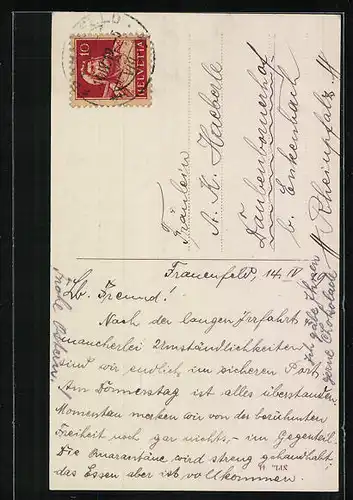 10
HELVETIA
Fräulein
A. K. Haeberle
Daubenbornerhof
b. Enkenbach
Rheinpfalz
Frauenfeld, 14. IV
Lb. Freund!
Nach der langen Irrfahrt
mancherlei Umständlichkeiten
sind wir endlich im sicheren Port.
Am Donnerstag ist alles überstanden
Momentan merken wir von der berühmten
Freiheit noch gar nichts, - im Gegenteil.
Die Quarantäne wird streng gehandhabt;
das Essen aber ist vollkommen.